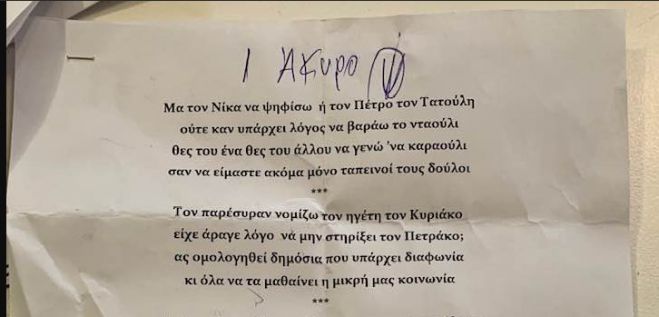 1 ΑΚυρο
Μα τον Νίκα να ψηφίσω ή τον Πέτρο τον Τατούλη
ούτε καν υπάρχει λόγος να βαράω το νταούλι
θες του ένα θες του άλλου να γενώ 'να καραούλι
σαν να είμαστε ακόμα μόνο ταπεινοί τους δούλοι
***
Τον παρέσυραν νομίζω τον ηγέτη τον Κυριάκο
είχε άραγε λόγο νά μην στηρίξει τον Πετράκο;
ας ομολογηθεί δημόσια που υπάρχει διαφωνία
κι όλα να τα μαθαίνει η μικρή μας κοινωνία
***